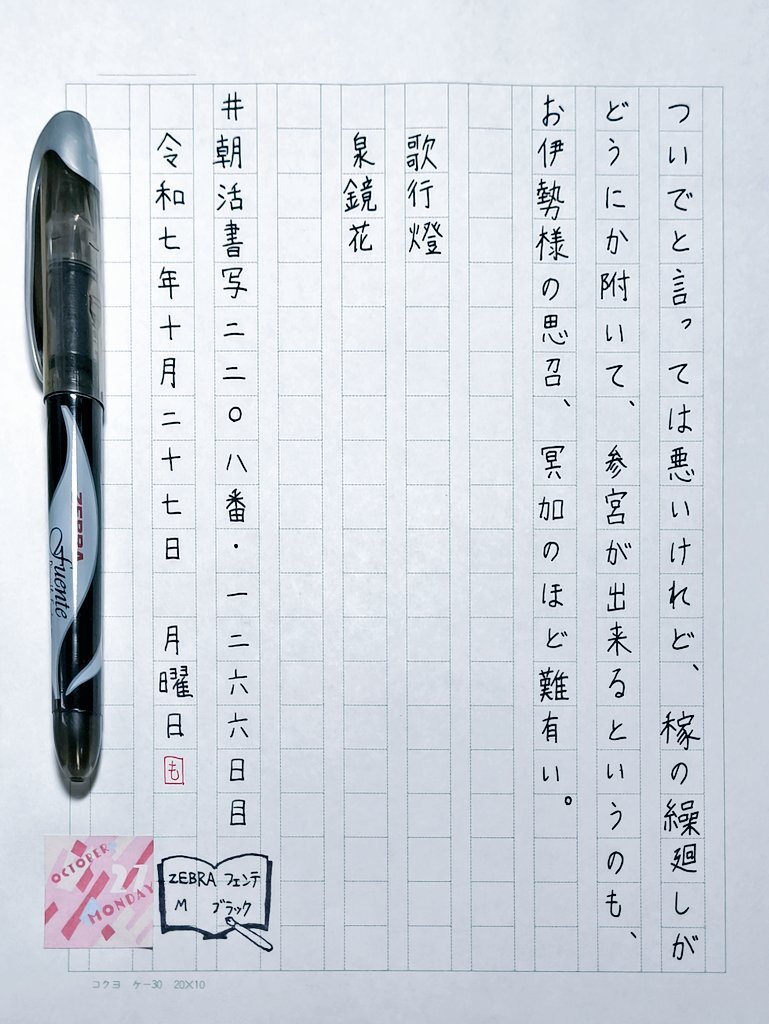 ついでと言っては悪いけれど、稼の繰廻しが
どうにか附いて、参宮が出来るというのも、
お伊勢様の思召、冥加のほど難有い。
歌行燈
泉鏡花
#朝活書写二二〇八番・一二六六日目
令和七年十月二十七日 月曜日
も
ZEBRA フェンテ
M ブラック
OCTOBER
27
MONDAY
ZEBRA
Fuente
コクヨ ケー30 20×10